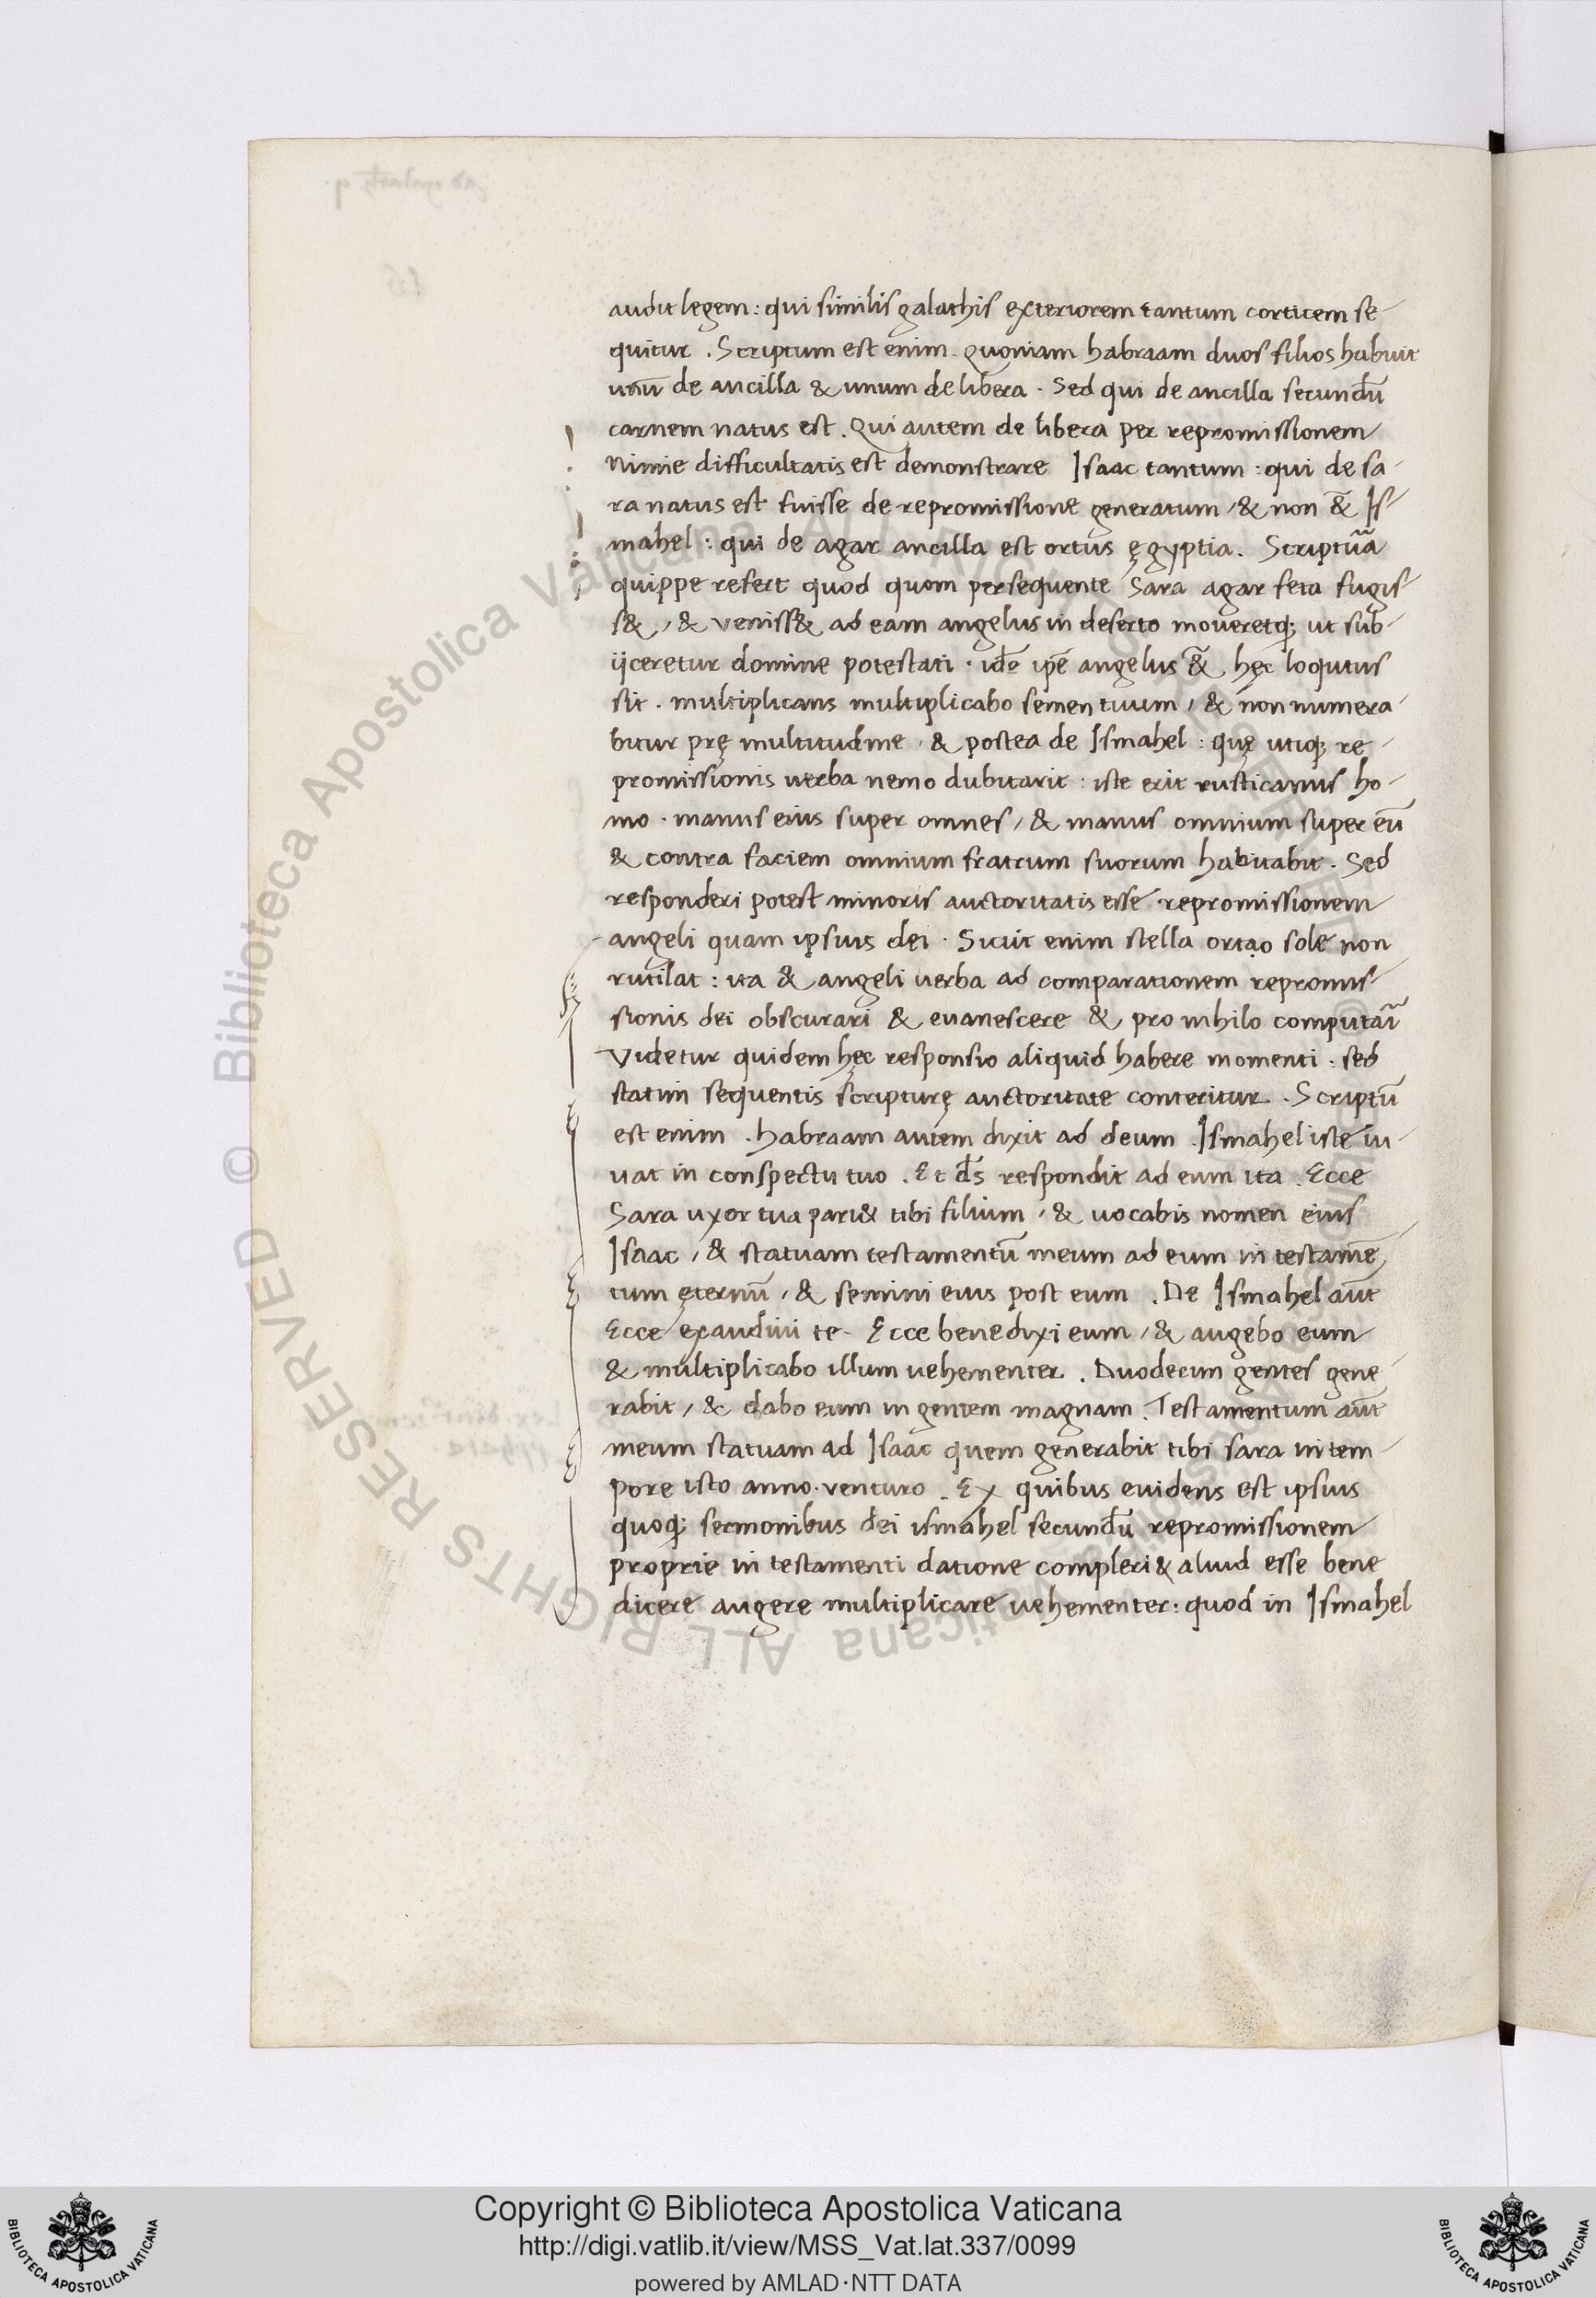 audit legem : qui similis galathis exteriorem tantum corticem se-
quitur . Scriptum est enim . Quoniam habraam duos filios habuit
unū de ancilla & unum de libera . Sed qui de ancilla secundū
carnem natus est . Qui autem de libera per repromissionem
Nimie difficultatis est demonstrare Isaac tantum : qui de sa-
ra natus est fuisse de repromissione generatum / & non &̄ Is-
mahel : qui de agar ancilla est ortus ęgyptia . Scriptūa
quippe refert quod quom persequente Sara agar feta fugis-
s& / & veniss& ad eam angelus in deserto moveretq; ut sub-
ijceretur domine potestati . idē ip̄e angelus &̄ hęc loqutus
sit . multiplicans multiplicabo semen tuum / & non numera-
bitur prę multitudine / & postea de Ismahel : quę utiq; re-
promissionis uerba nemo dubitarit : iste erit rusticanus ho-
mo . manus eius super omnes / & manus omnium super eū
& contra faciem omnium fratrum suorum habitabit . Sed
responderi potest minoris auctoritatis esse repromissionem
angeli quam ipsius dei . Sicut enim stella ortạo sole non
rutilat : ita & angeli uerba ad comparationem repromis-
sionis dei obscurari & euanescere & pro nihilo computāi
Videtur quidem hęc responsio aliquid habere momenti : sed
statim sequentis scripturę auctoritate conteritur . Scriptū
est enim . habraam autem dixit ad deum . Ismahel iste ui-
uat in conspectu tuo . Et d̄s respondit ad eum ita . Ecce
Sara uxor tua pari& tibi filium / & uocabis nomen eius
Isaac / & statuam testamentū meum ad eum in testamē
tum ęternū / & semini eius post eum . De Ismahel aūt
Ecce exaudiui te . Ecce benedixi eum / & augebo eum
& multiplicabo illum uehementer . Duodecim gentes gene-
rabit / & dabo eum in gentem magnam . Testamentum aūt
meum statuam ad Isaac quem generabit tibi sara in tem-
pore isto anno venturo . Ex quibus euidens est ipsius
quoq; sermonibus dei ismahel secundū repromissionem
proprie in testamenti datione compleri & aliud esse bene
dicere augere multiplicare uehementer : quod in Ismahel
© Biblioteca Apostolica Vaticana ALL RIGHTS RESERVED
Copyright © Biblioteca Apostolica Vaticana
http://digi.vatlib.it/view/MSS_Vat.lat.337/0099
powered by AMLAD·NTT DATA
BIBLIOTECA APOSTOLICA VATICANA
BIBLIOTECA APOSTOLICA VATICANA